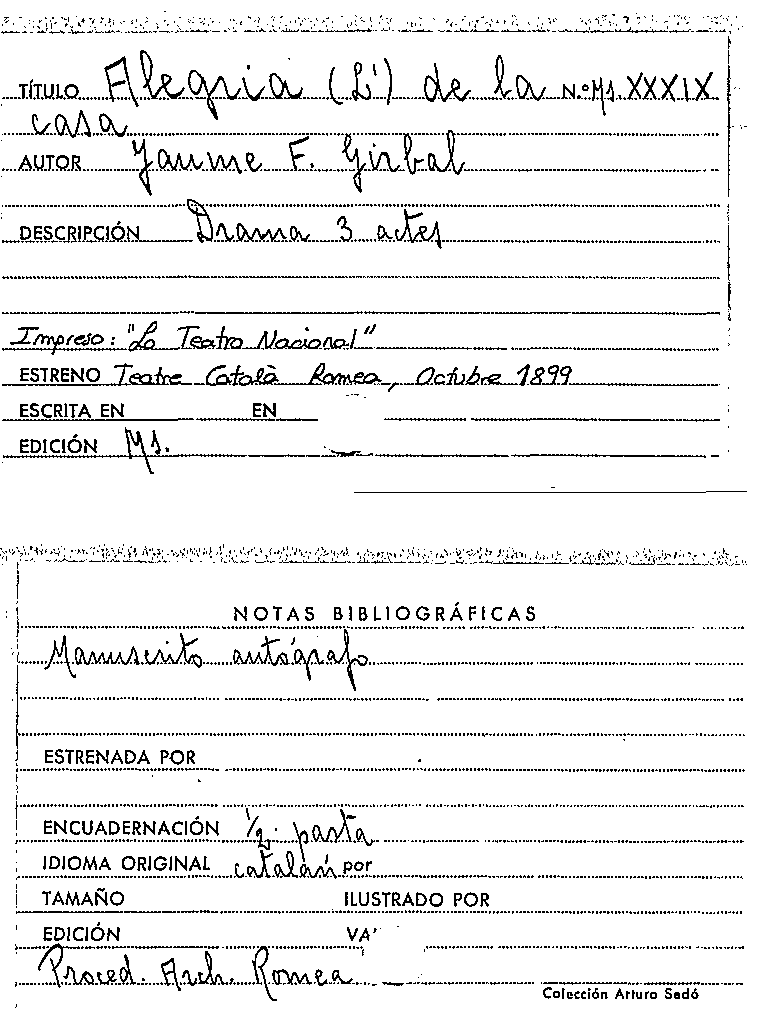 TÍTULO Alegria (L') de la N.º Ms. XXXIX
casa
AUTOR Jaume F. Girbal
DESCRIPCIÓN Drama 3 actes
Impreso: "Lo Teatro Nacional"
ESTRENO Teatre Català Romea, Octubre 1899
ESCRITA EN EN
EDICIÓN Ms.
NOTAS BIBLIOGRÁFICAS
Manuscrito autógrafo
ESTRENADA POR
ENCUADERNACIÓN ½ pasta
IDIOMA ORIGINAL catalán por
TAMAÑO ILUSTRADO POR
EDICIÓN VA
Proced. Arch. Romea
Colección Arturo Sedó